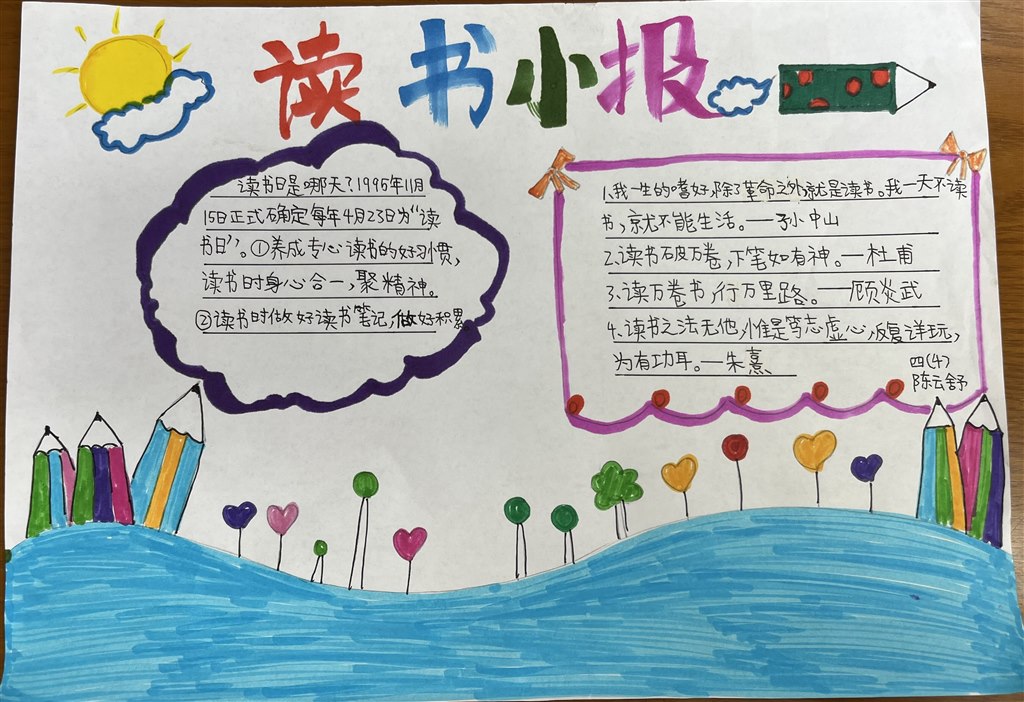 读书小报
读书日是哪天?1995年11月
15日正式确定每年4月23日为“读
书日”。①养成专心读书的好习惯,
读书时身心合一,聚精神。
②读书时做好读书笔记,做好积累。
1.我一生的嗜好,除了革命之外,就是读书。我一天不读
书,就不能生活。—孙中山
2.读书破万卷,下笔如有神。—杜甫
3.读万卷书,行万里路。—顾炎武
4.读书之法无他,惟是笃志虚心,反复详玩,
为有功耳。—朱熹
四(4)
陈云舒